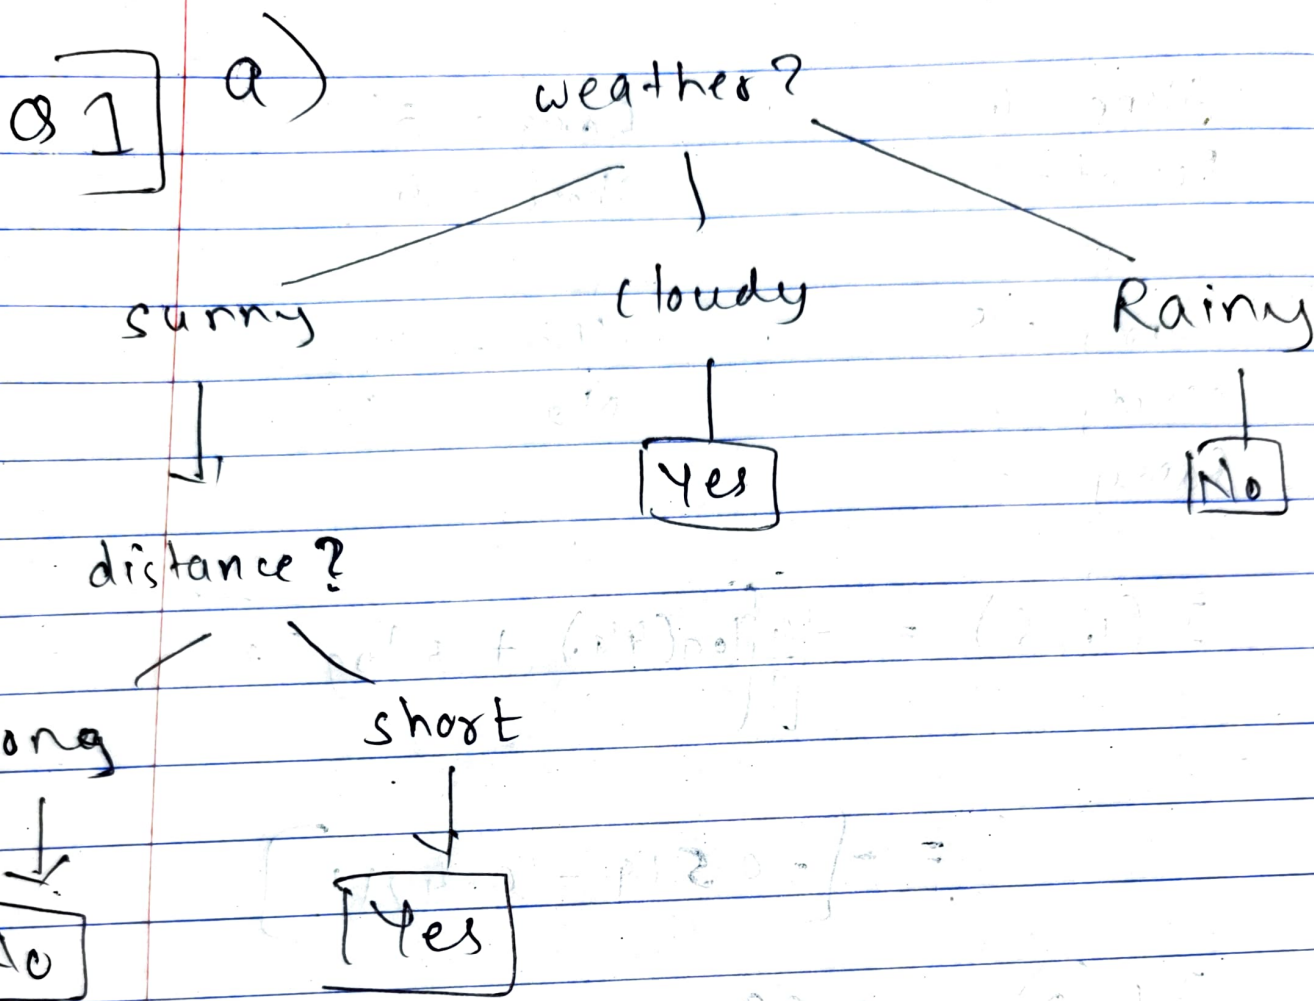 Q1 a) weather?
sunny cloudy Rainy
Yes No
distance?
ong short
No Yes